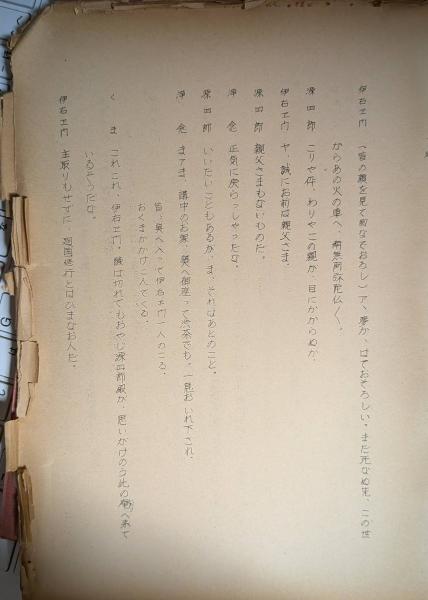 伊右エ門 (皆の顔を見て胸なでおろし) アヽ夢か、はておそろしい。まだ死なぬ先、この世
からあの火の車へ、南無阿弥陀仏〱。
源四郎 こりや伜、わりやこの親が、目にかからぬか。
伊右エ門 ヤ、誠にお前は親父さま。
源四郎 親父さまもないものだ。
浄念 正気に戻らっしゃったな。
源四郎 いいたいこともあるが、ま、それはあとのこと。
浄念 まアま、講中のお衆、奥へ御座って渋茶でも、一見おいれ下され。
皆々奥へ入って伊右エ門一人のこる。
おくまかけこんでくる。
くま これこれ、伊右エ門、縁は切れてもおやじ源四郎殿が、思いかけのう此の庵へ来て
いるそうだな。
伊右エ門 主取りもせずに、廻国修行とはひまなお人だ。